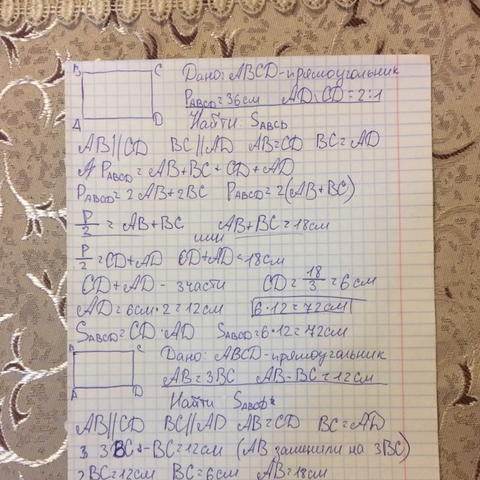 B C
A D
Дано: ABCD-прямоугольник
PABCD=36см AD:CD=2:1
Найти SABCD
AB||CD BC||AD AB=CD BC=AD
PABCD=AB+BC+CD+AD
PABCD=2AB+2BC PABCD=2(AB+BC)
P/2=AB+BC AB+BC=18см
или
P/2=CD+AD CD+AD=18см
CD+AD-3части CD=18/3=6см
AD=6см·2=12см 6·12=72см
SABCD=CD·AD SABCD=6·12=72см
B C
A D
Дано: ABCD-прямоугольник
AB=3BC AB-BC=12см
Найти SABCD
AB||CD BC||AD AB=CD BC=AD
3BC-BC=12см (AB заменили на 3BC)
2BC=12см BC=6см AB=18см